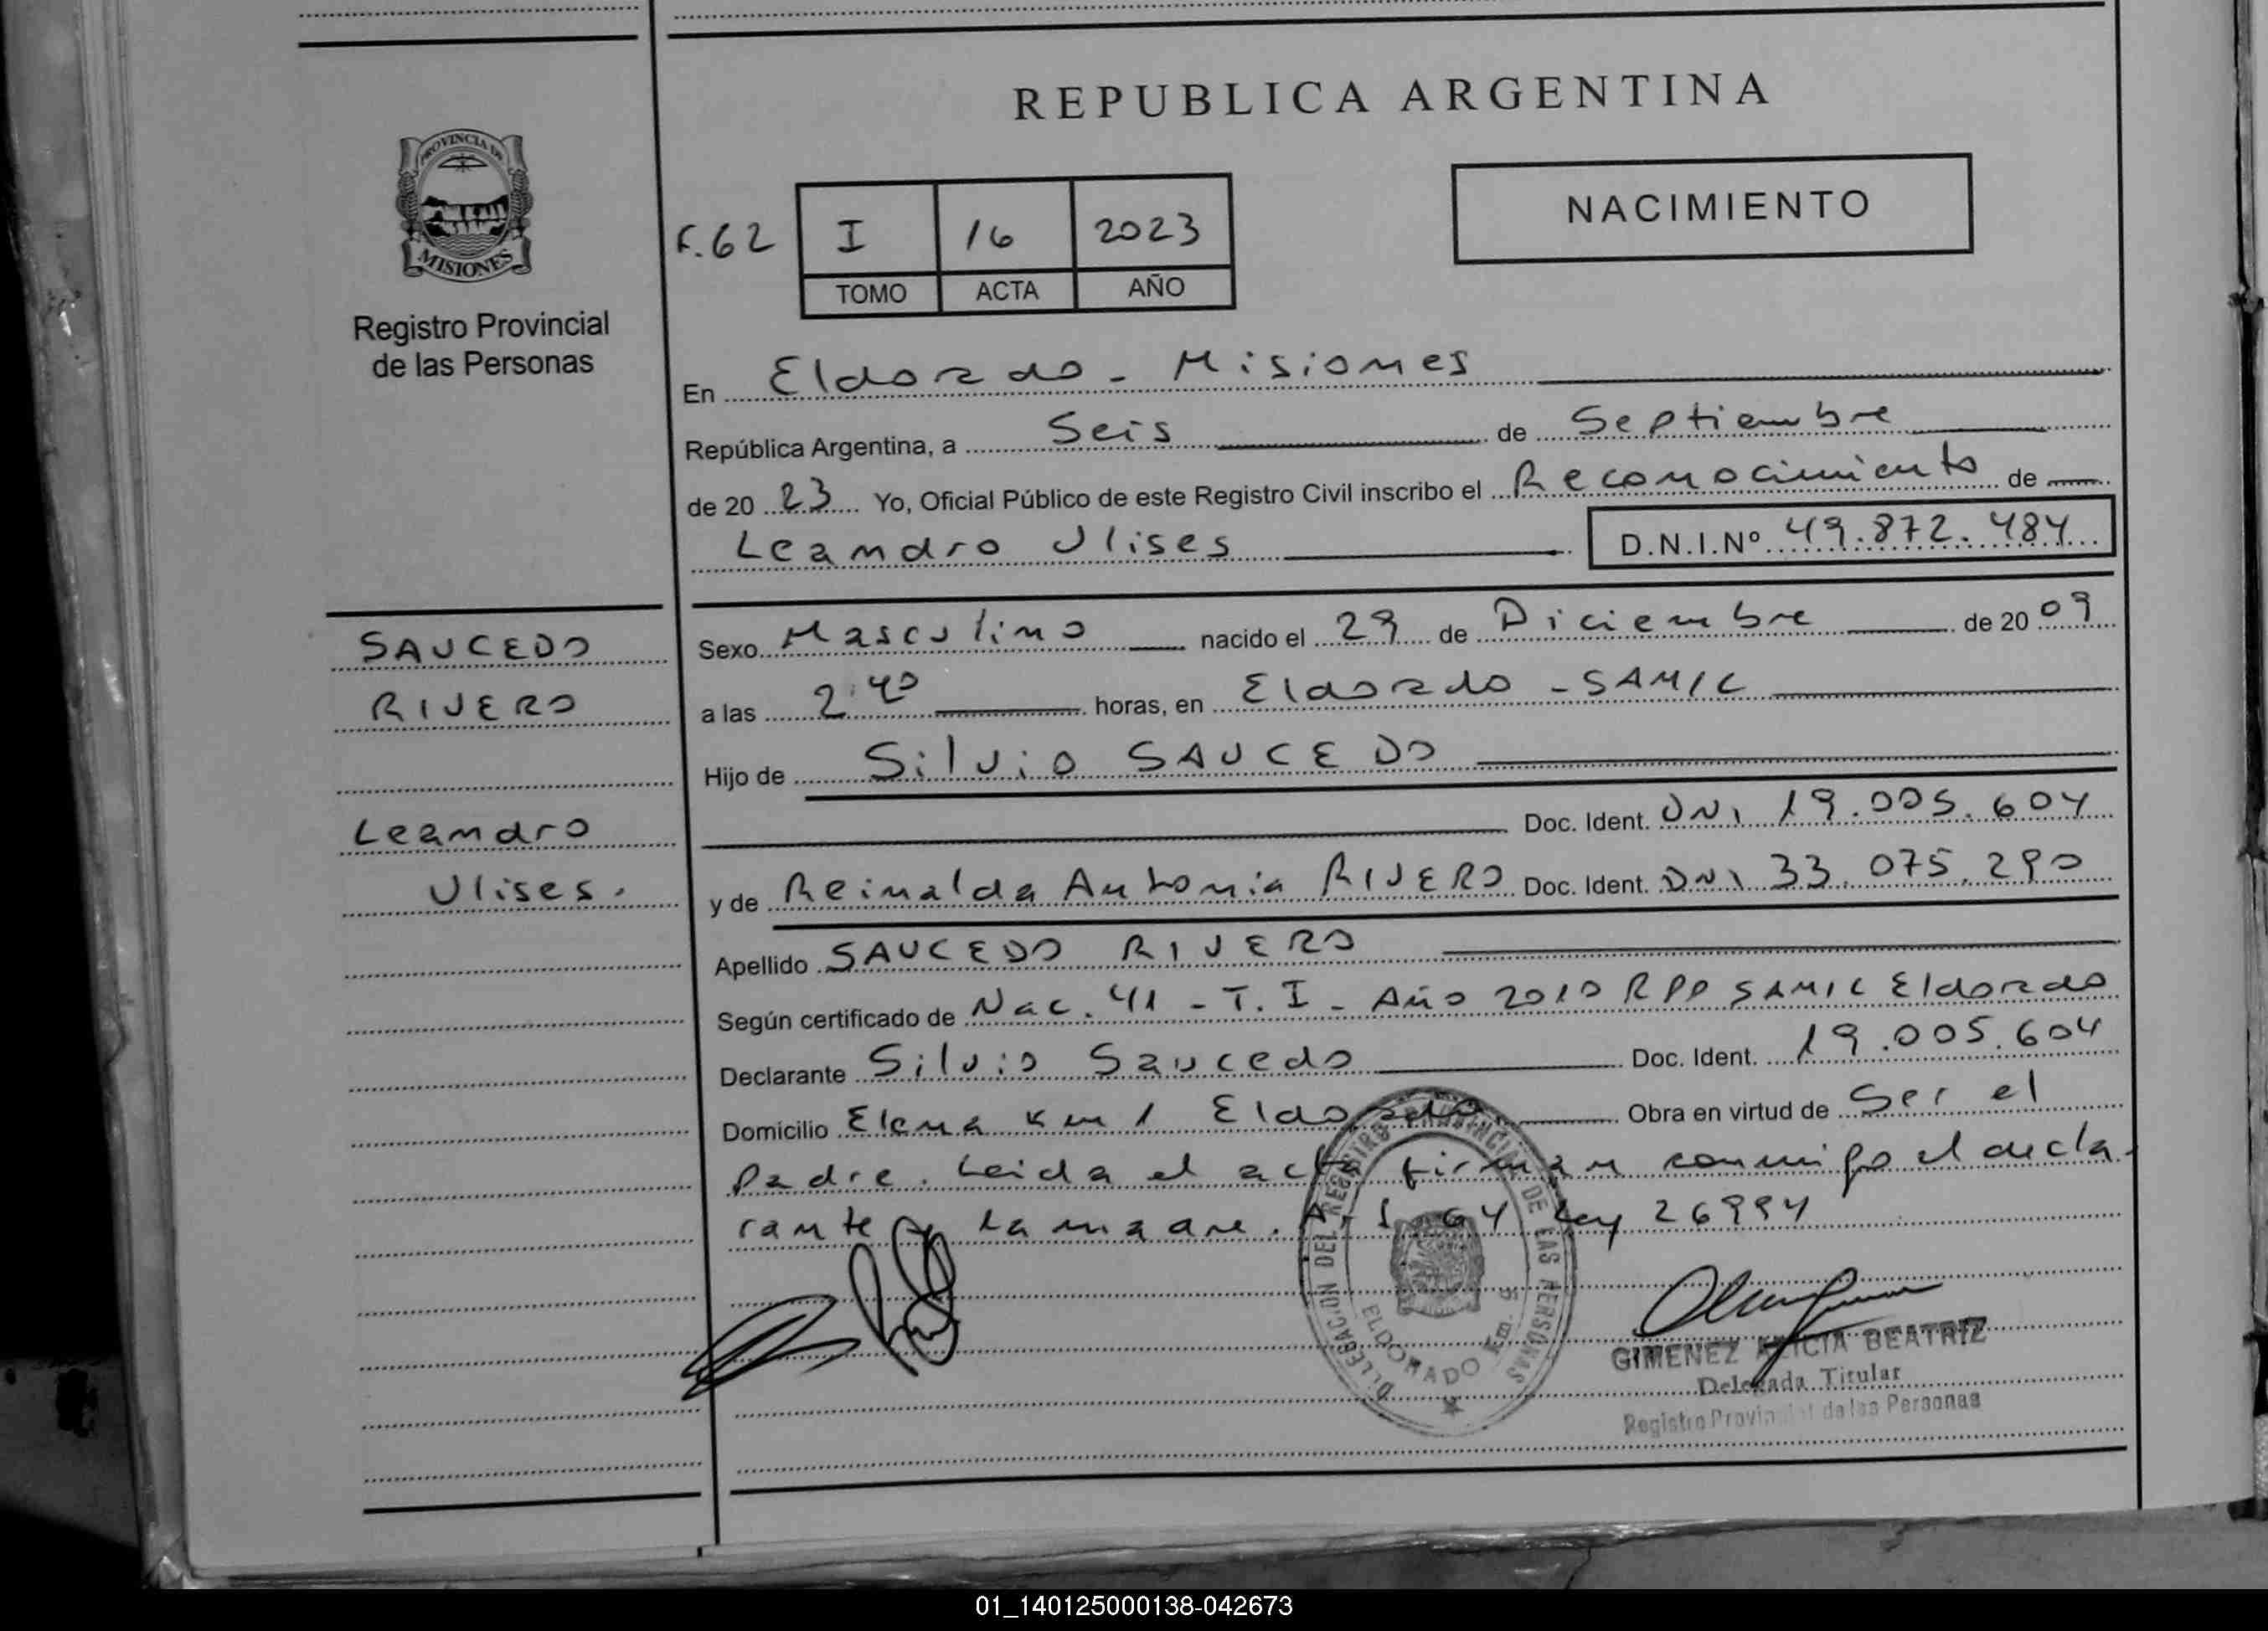 REPUBLICA ARGENTINA
PROVINCIA DE
MISIONES
Registro Provincial
de las Personas
NACIMIENTO
F.62 I 16 2023
TOMO ACTA AÑO
En Eldorado - Misiones
República Argentina, a Seis de Septiembre
de 2023 Yo, Oficial Público de este Registro Civil inscribo el Reconocimiento de
Leandro Ulises D.N.I.Nº 49.872.484
SAUCEDO
RIVERO
Leandro
Ulises.
Sexo Masculino nacido el 29 de Diciembre de 2009
a las 2:40 horas, en Eldorado - SAMIC
Hijo de Silvio SAUCEDO
Doc. Ident. DNI 19.005.604
y de Reinalda Antonia RIVERO Doc. Ident. DNI 33.075.290
Apellido SAUCEDO RIVERO
Según certificado de Nac. 41 - T. I - Año 2010 RPP SAMIC Eldorado
Declarante Silvio Saucedo Doc. Ident. 19.005.604
Domicilio Elena Km 1 Eldorado Obra en virtud de Ser el
Padre. Leida el acta firman conmigo el decla-
rante y la madre. Art. 64 Ley 26994
DELEGACION DEL REGISTRO PROVINCIAL DE LAS PERSONAS
ELDORADO Km. 9
GIMENEZ ALICIA BEATRIZ
Delegada Titular
Registro Provincial de las Personas
01_140125000138-042673